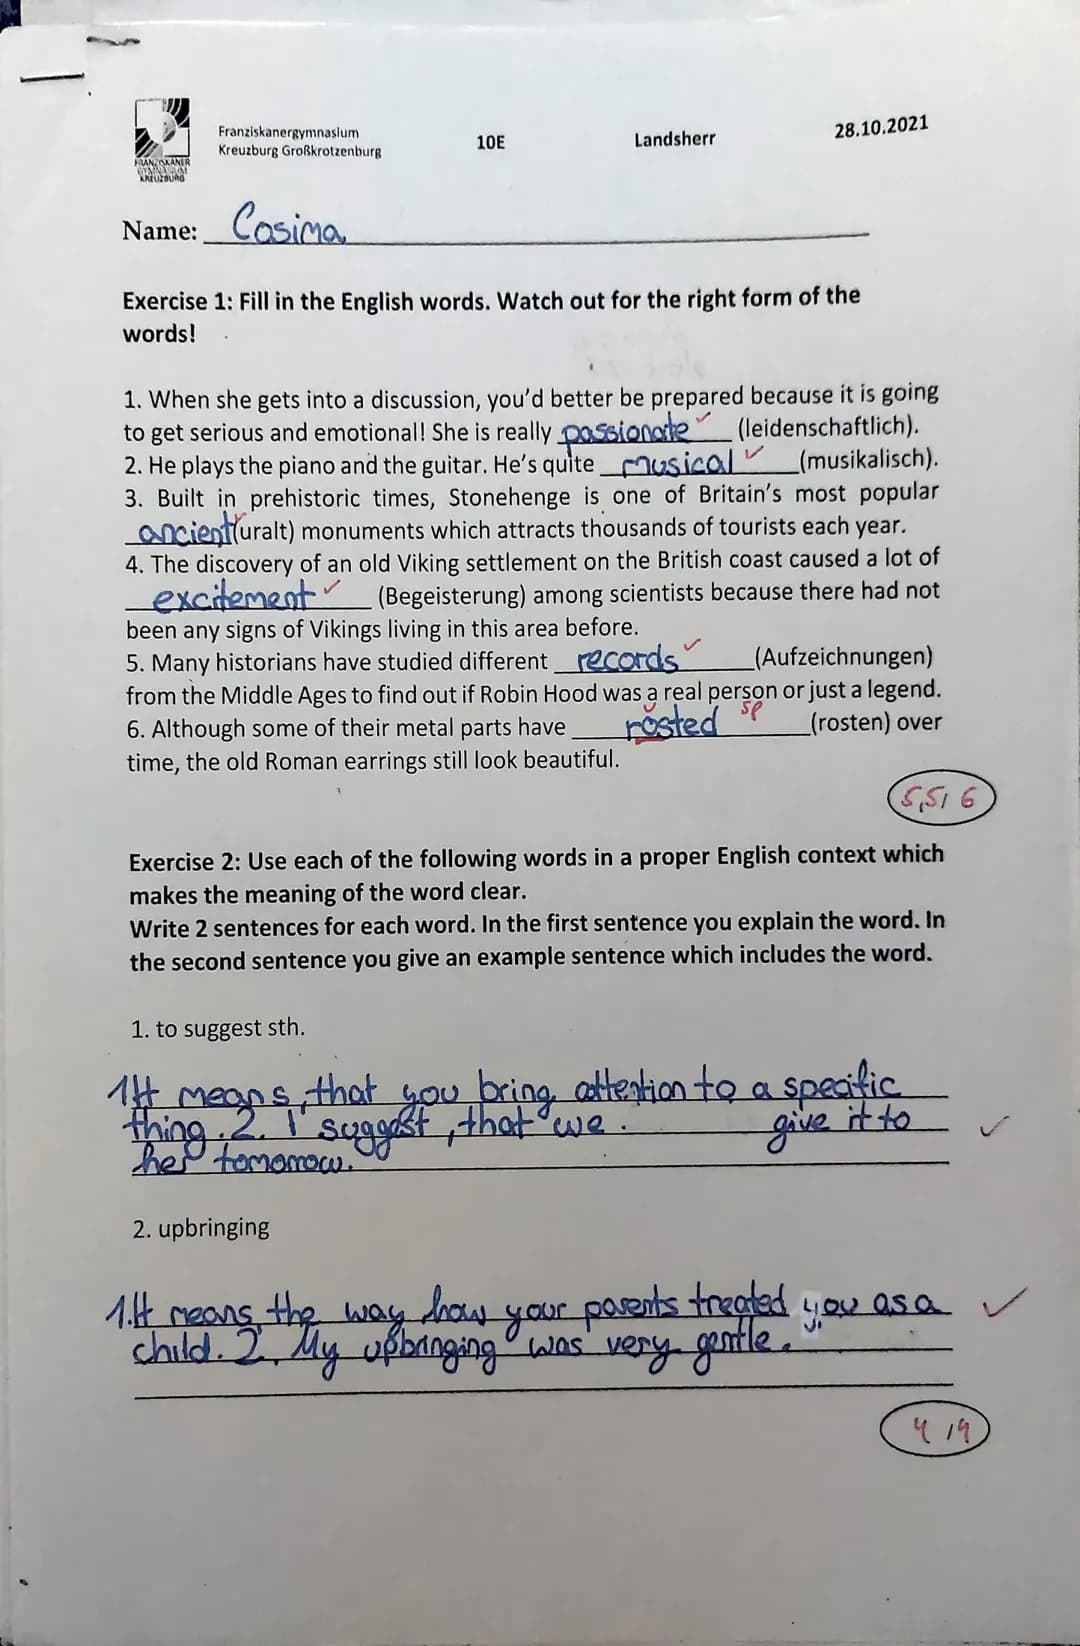 FRANZISKANER
GYMNASIUM
KREUZBURG
Franziskanergymnasium
Kreuzburg Großkrotzenburg
10E
Landsherr
28.10.2021
Name: Cosima
Exercise 1: Fill in the English words. Watch out for the right form of the
words!
1. When she gets into a discussion, you'd better be prepared because it is going
to get serious and emotional! She is really passionate (leidenschaftlich).
2. He plays the piano and the guitar. He's quite musical (musikalisch).
3. Built in prehistoric times, Stonehenge is one of Britain's most popular
ancient (uralt) monuments which attracts thousands of tourists each year.
4. The discovery of an old Viking settlement on the British coast caused a lot of
excitement (Begeisterung) among scientists because there had not
been any signs of Vikings living in this area before.
5. Many historians have studied different records (Aufzeichnungen)
from the Middle Ages to find out if Robin Hood was a real person or just a legend.
6. Although some of their metal parts have rosted sp (rosten) over
time, the old Roman earrings still look beautiful.
5,5/6
Exercise 2: Use each of the following words in a proper English context which
makes the meaning of the word clear.
Write 2 sentences for each word. In the first sentence you explain the word. In
the second sentence you give an example sentence which includes the word.
1. to suggest sth.
1It means, that you bring attention to a specific
thing. 2. I suggest, that we give it to
her tomorrow.
2. upbringing
1.It means the way how your parents treated you as a
child. 2. My upbringing was very gentle.
4/4